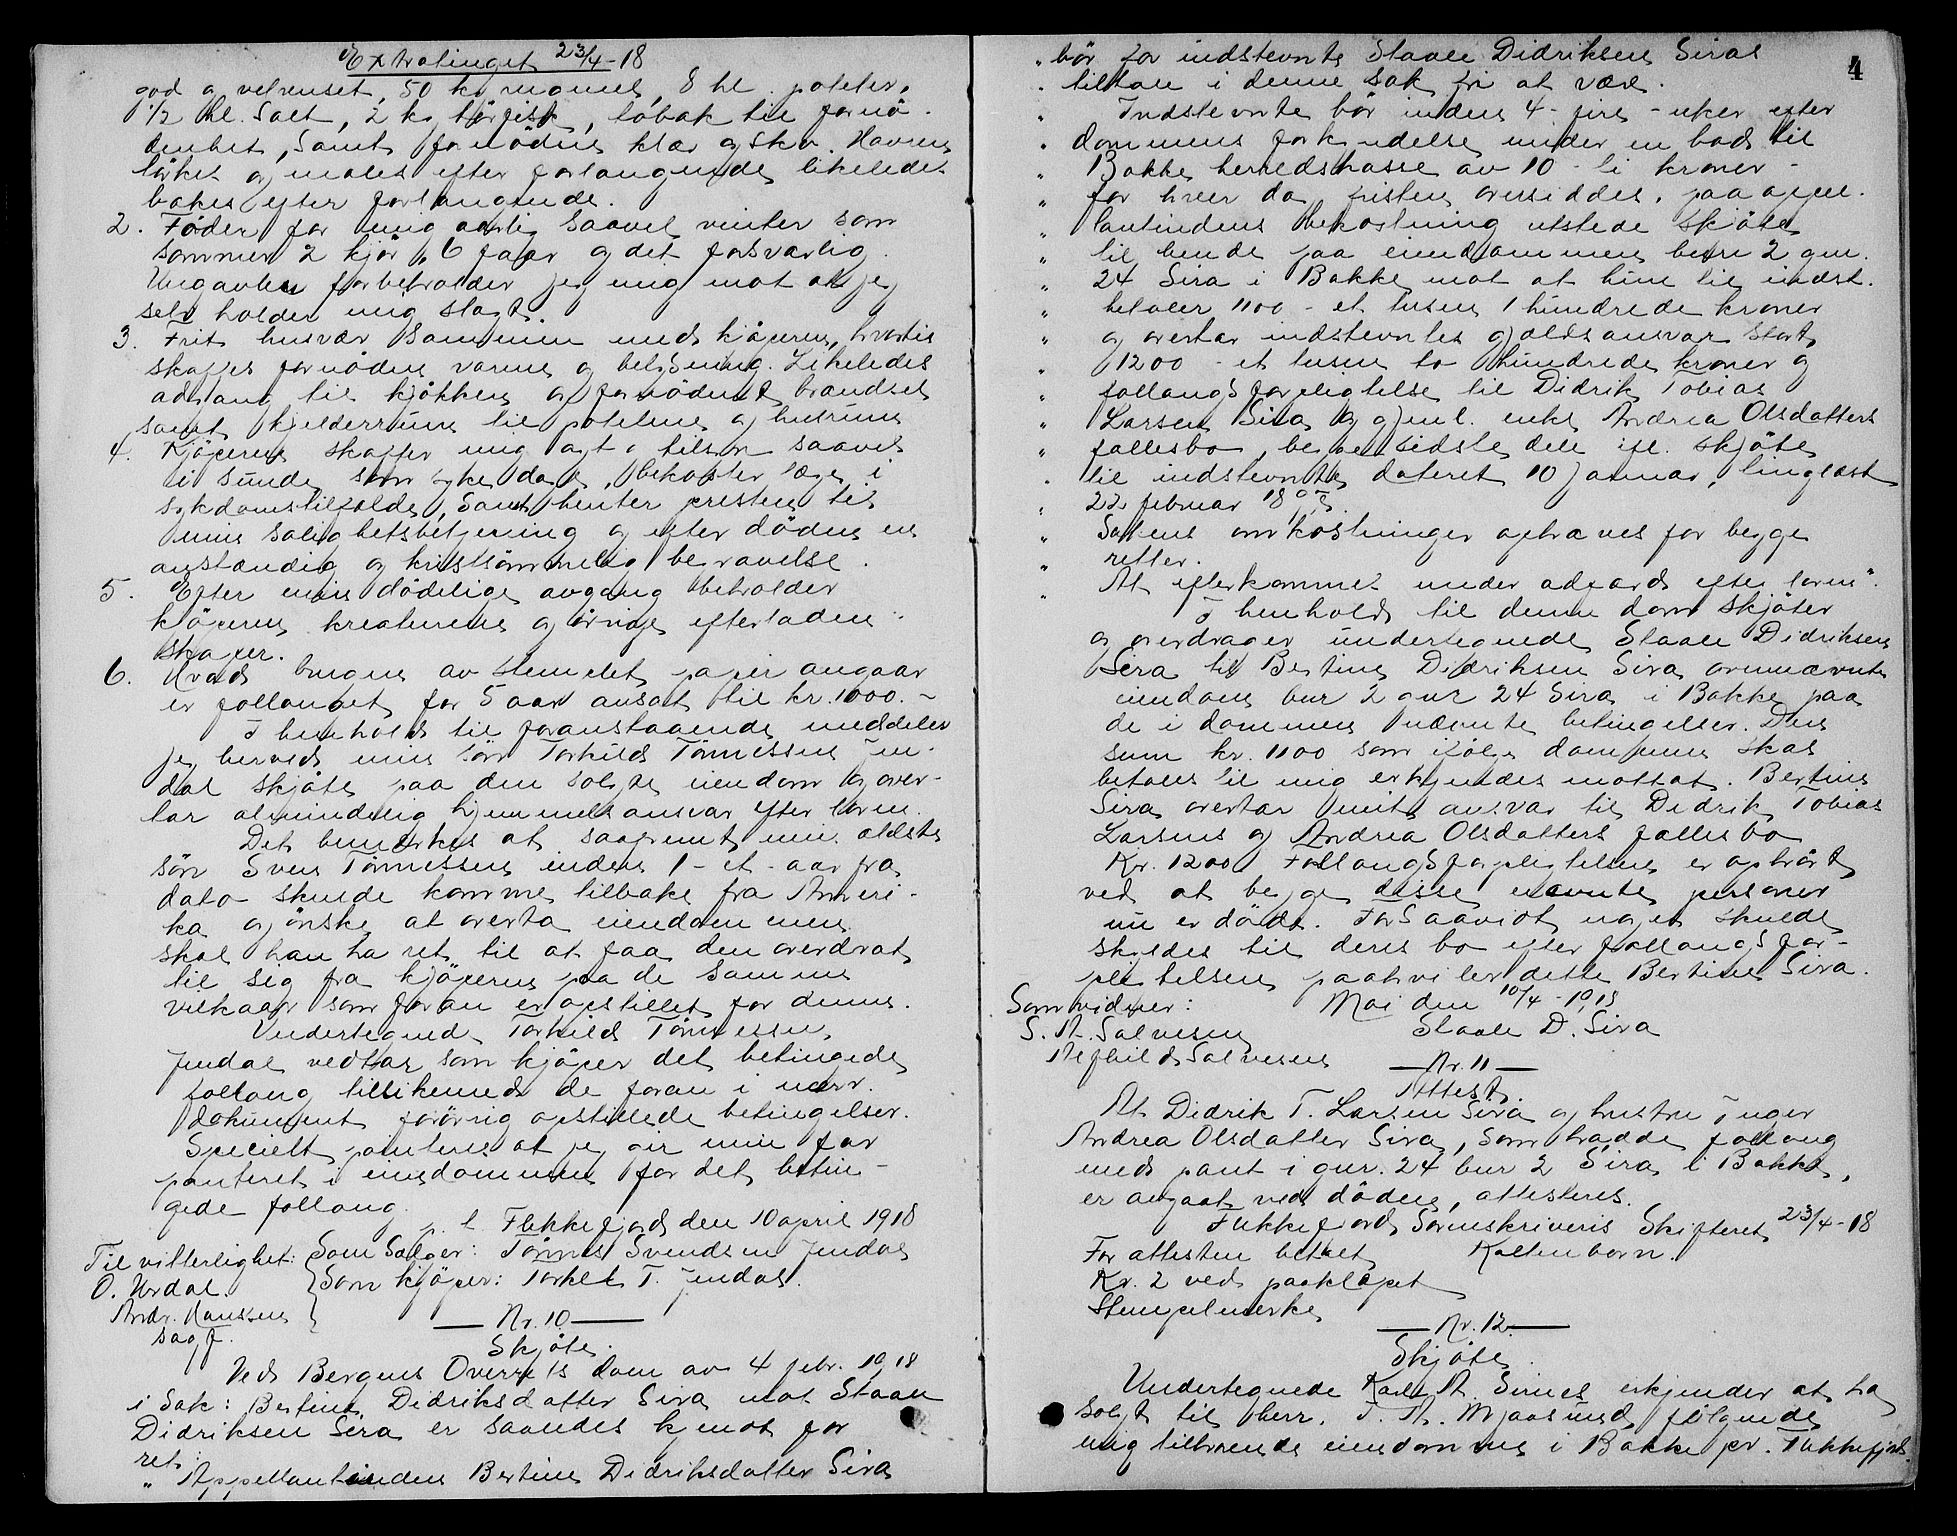 Extratinget 23/4-18
god og velrenset, 50 kg. mamel, 8 hl. poteter,
1/2 hl. Salt, 2 kg tørfisk, tobak til fornø-
denhet, samt fornødne klær og sko. Havren
tørkes og males efter forlangende, likeledes
bakes efter forlangende.
2. Føder for mig aarlig saavel vinter som
sommer 2 kjør, 6 faar og det forsvarlig.
Ungavlen forbeholder jeg mig mot at jeg
selv holder mig slagt.
3. Frit husvær sammen med kjøperen, hvortil
skaffes fornøden varme og belysning. Likeledes
adgang til kjøkken og fornødent brændsel
samt kjelderrum til potetene og husrum
4. Kjøperen skaffer mig agt og tilsyn saavel
i sunde som syke dage, bekoster læge i
sykdomstilfælde, samt henter presten til
min salighetsbetjening og efter døden en
anstændig og kristsømmelig begravelse.
5. Efter min dødelige avgang beholder
kjøperen kreaturene og øvrige efterladen-
skaper.
6. Hvad bruken av stemplet papir angaar
er follauget for 5 aar ansat til kr. 1000.-
I henhold til foranstaaende meddeler
jeg herved min søn Torkild Tønnessen Jen-
dal skjøte paa den solgte eiendom og over-
tar almindelig hjemmelsansvar efter loven.
Det bemerkes at saafremt min ældste
søn Sven Tønnessen inden 1 - et - aar fra
dato skulde komme tilbake fra Ameri-
ka og ønske at overta eiendommen
skal han ha ret til at faa den overdrat
til sig fra kjøperen paa de samme
vilkaar som foran er opstillet for denne.
Undertegnede Torkild Tønnessen
Jendal vedtar som kjøper det betingede
follaug tillikemed de foran i nærv.
dokument forøvrig opstillede betingelser.
Specielt panteres at jeg gir min far
panteret i eiendommen for det betin-
gede follaug.
p. t. Flekkefjord den 10 april 1918
Til vitterlighet: Som Sælger: Tønnes Svendsen Jendal
O. Urdal. Som kjøper: Torkel T. Jendal.
Andr. Hanssen
sagf.
— Nr. 10 —
Skjøte.
Ved Bergens Overrets dom av 4 febr. 1918
i Sak: Bertine Didriksdatter Sira mot Staale
Didriksen Sira er saaledes kjendt for
ret:
" Appellantinden Bertine Didriksdatter Sira
4
" bør for indstevnte Staale Didriksens Siras
" tiltale i denne sak fri at være.
" Indstevnte bør inden 4 - fire - uker efter
" dommens forkyndelse under en bod til
" Bakke herredskasse av 10 - ti kroner -
" for hver dag fristen oversiddes, paa appel-
" lantindens bekostning utstede skjøte
" til hende paa eiendommen bnr. 2 gnr.
" 24 Sira i Bakke mot at hun til indst.
" betaler 1100 - et tusen 1 hundrede kroner
" og overtar indstevntes gjældsansvar stort
" 1200 - et tusen to hundrede kroner og
" follaugsforpligtelse til Didrik Tobias
" Larsen Sira og gjenl. enke Andrea Olsdatters
" fællesbo, begge sidste dele ifl. skjøte
" til indstevnte dateret 10 januar, tinglæst
" 22 februar
" Sakens omkostninger ophæves for begge
" retter.
" At efterkommes under adfærd efter loven".
I henhold til denne dom skjøter
og overdrager undertegnede Staale Didriksen
Sira til Bertine Didriksen Sira ovennævnte
eiendom bnr 2 gnr 24 Sira i Bakke paa
de i dommen nævnte betingelser. Den
sum kr. 1100 som ifølge dommen skal
betales til mig erkjendes mottat. Bertine
Sira overtar mit ansvar til Didrik Tobias
Larsens og Andrea Olsdatters fællesbo
Kr. 1200. Follaugsforpligtelsen er ophørt
ved at begge disse nævnte personer
nu er døde. Forsaavidt noget skulde
skyldes til deres bo efter follaugsfor-
pligtelsen paahviler dette Bertine Sira.
Som vidner: Moi den 10/4-1918
S. A. Salvesen Staale D. Sira
Salvesen
— Nr. 11 —
Attest.
At Didrik T. Larsen Sira og hustru Inger
Andrea Olsdatter Sira, som hadde follaug
med pant i gnr. 24 bnr 2 Sira i Bakke,
er avgaat ved døden, attesteres.
Flekkefjord Sorenskriveris Skifteret 23/4-18
For attesten betalt Kaltenborn.
Kr. 2 ved paaklæpet
Stempelmerke
— Nr. 12. —
Skjøte.
Undertegnede Karl A. Sirnes erkjender at ha
solgt til herr. T. A. Mjaasund følgende
mig tilhørende eiendomme i Bakke pr. Flekkefjord.